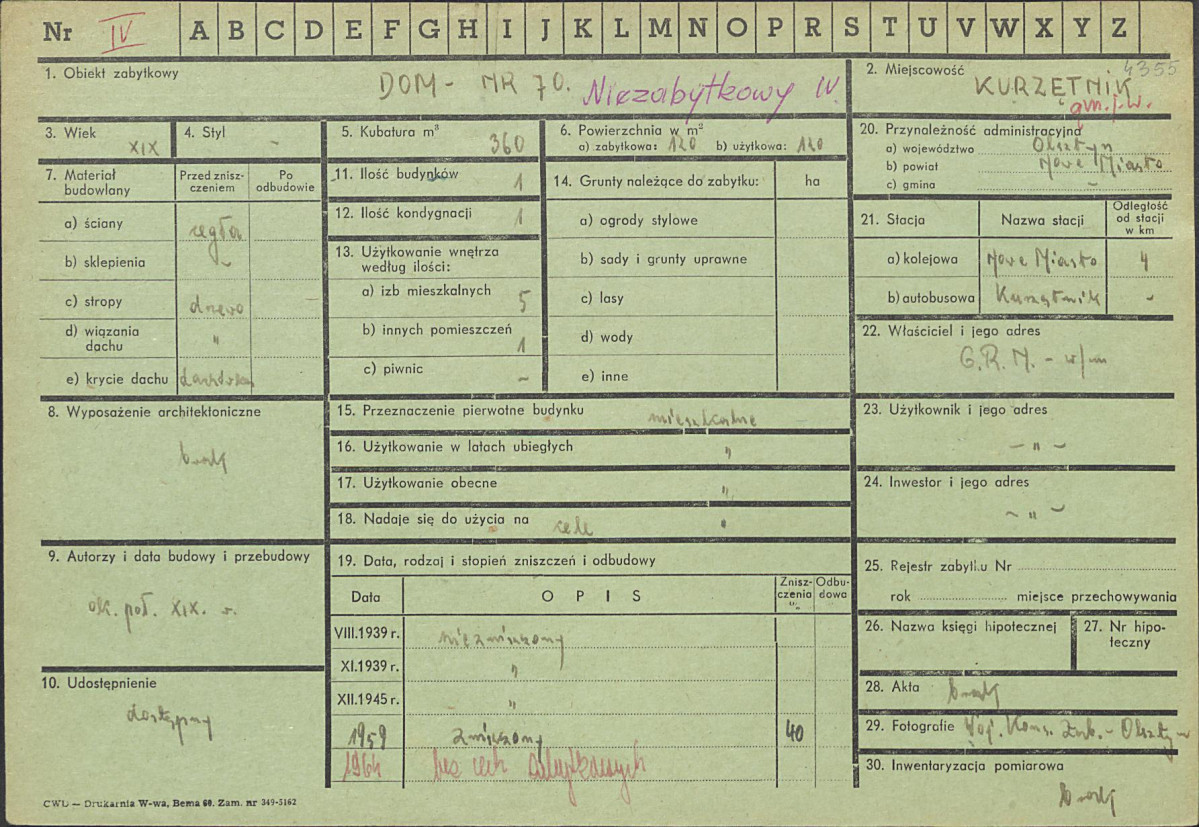 Nr IV A B C D E F G H I J K L M N O P R S T U V W X Y Z
1. Obiekt zabytkowy DOM - NR 70. Niezabytkowy IV
2. Miejscowość 4355
KURZETNIK
gm. j.w.
3. Wiek XIX
4. Styl -
5. Kubatura m³ 360
6. Powierzchnia w m²
a) zabytkowa: 120 b) użytkowa: 120
20. Przynależność administracyjna
a) województwo Olsztyn
b) powiat Nowe Miasto
c) gmina -
7. Materiał budowlany
Przed zniszczeniem
Po odbudowie
a) ściany cegła
b) sklepienia -
c) stropy drewo
d) wiązania dachu "
e) krycie dachu dachówka
11. Ilość budynków 1
12. Ilość kondygnacji 1
13. Użytkowanie wnętrza
według ilości:
a) izb mieszkalnych 5
b) innych pomieszczeń 1
c) piwnic -
14. Grunty należące do zabytku: ha
a) ogrody stylowe
b) sady i grunty uprawne
c) lasy
d) wody
e) inne
21. Stacja
Nazwa stacji
Odległość
od stacji
w km
a) kolejowa Nowe Miasto 4
b) autobusowa Kurzętnik -
22. Właściciel i jego adres
G.R.N. - w/m
8. Wyposażenie architektoniczne
brak
15. Przeznaczenie pierwotne budynku mieszkalne
16. Użytkowanie w latach ubiegłych "
17. Użytkowanie obecne "
18. Nadaje się do użycia na cele "
23. Użytkownik i jego adres
- " -
24. Inwestor i jego adres
- " -
9. Autorzy i data budowy i przebudowy
ok. poł. XIX. w.
10. Udostępnienie
dostępny
19. Data, rodzaj i stopień zniszczeń i odbudowy
Data
O P I S
Zniszczenia
Odbudowa
VIII.1939 r. niezniszczony
XI.1939 r. "
XII.1945 r. "
1959 zniszczony 40
1964 bez cech zabytkowych
25. Rejestr zabytku Nr
rok miejsce przechowywania
26. Nazwa księgi hipotecznej
27. Nr hipoteczny
28. Akta brak
29. Fotografie Woj. Kons. Zab. - Olsztyn
30. Inwentaryzacja pomiarowa
brak
CWD — Drukarnia W-wa, Bema 60. Zam. nr 349-5162